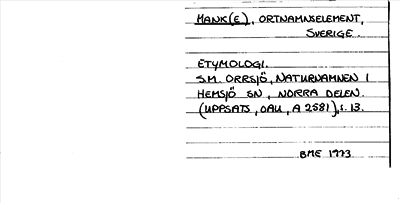 MANK(E), ORTNAMNSELEMENT,
SVERIGE.
ETYMOLOGI.
S.M. ORRSJÖ, NATURNAMNEN I
HEMSJÖ SN, NORRA DELEN.
(UPPSATS, OAU, A 2581), s. 13.
BME 1973